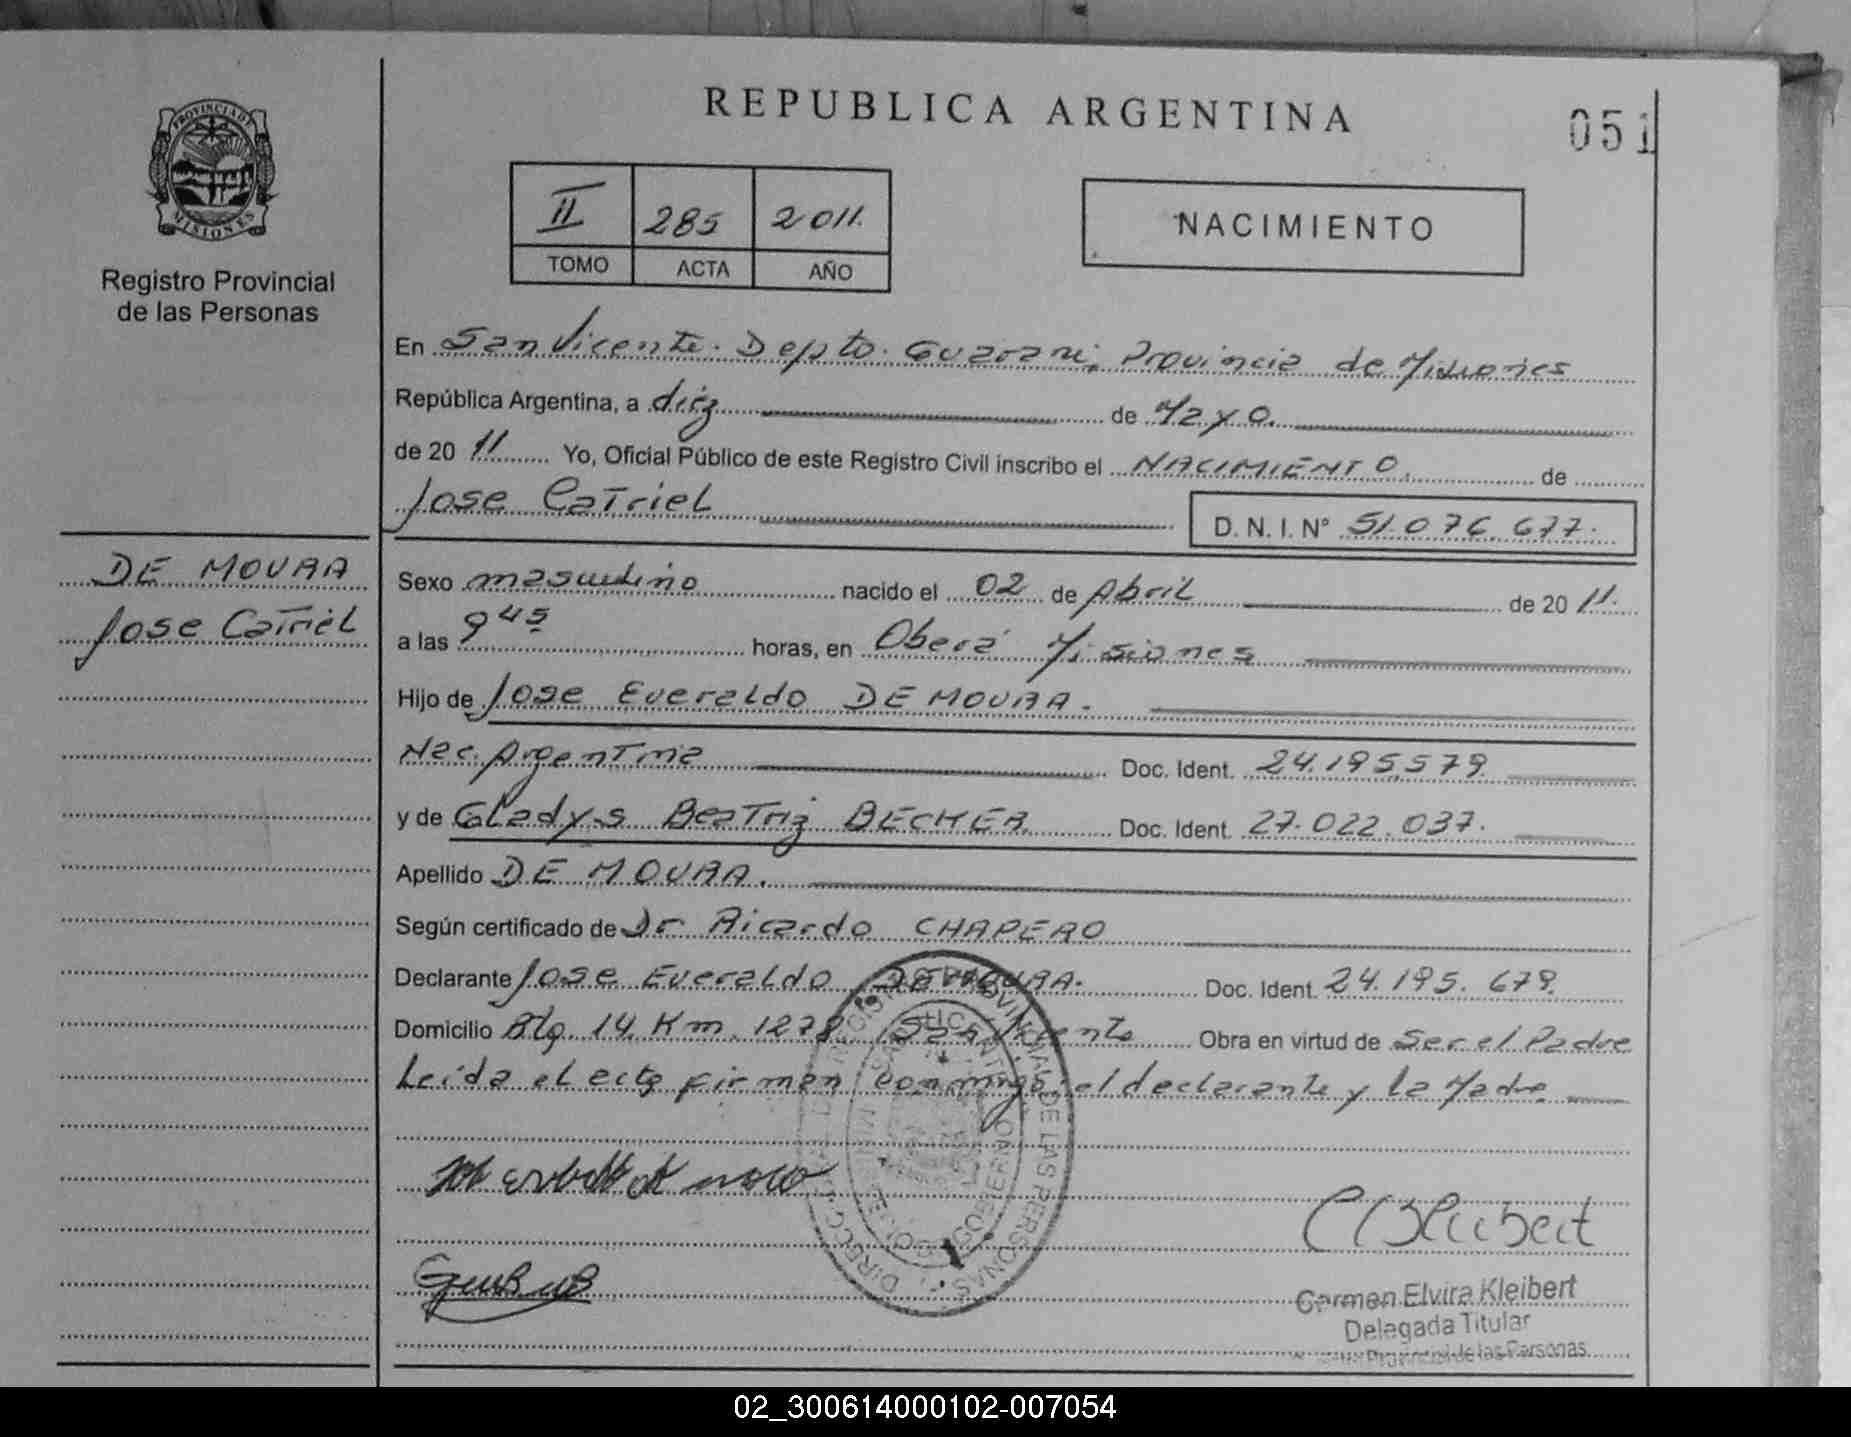 REPUBLICA ARGENTINA
051
PROVINCIA DE
MISIONES
Registro Provincial
de las Personas
II 285 2011.
TOMO ACTA AÑO
NACIMIENTO
En San Vicente. Depto. Guarani, Provincia de Misiones
República Argentina, a diez de Mayo.
de 20 11 Yo, Oficial Público de este Registro Civil inscribo el NACIMIENTO. de
Jose Catriel D. N. I. N° 51.076.677.
DE MOURA
Jose Catriel
Sexo masculino nacido el 02 de Abril de 20 11.
a las 9 45 horas, en Oberá Misiones
Hijo de Jose Everaldo DE MOURA.
Nac. Argentina Doc. Ident. 24.195.579
y de Gladys Beatriz BECKER Doc. Ident. 27.022.037.
Apellido DE MOURA.
Según certificado de Dr Ricardo CHAPERO
Declarante Jose Everaldo DE MOURA. Doc. Ident. 24.195.679.
Domicilio Blg. 14. Km. 1278 San Vicente Obra en virtud de Ser el Padre
Leída el acta firman conmigo el declarante y la Madre
Carmen Elvira Kleibert
Delegada Titular
Provincial de las Personas
02_300614000102-007054